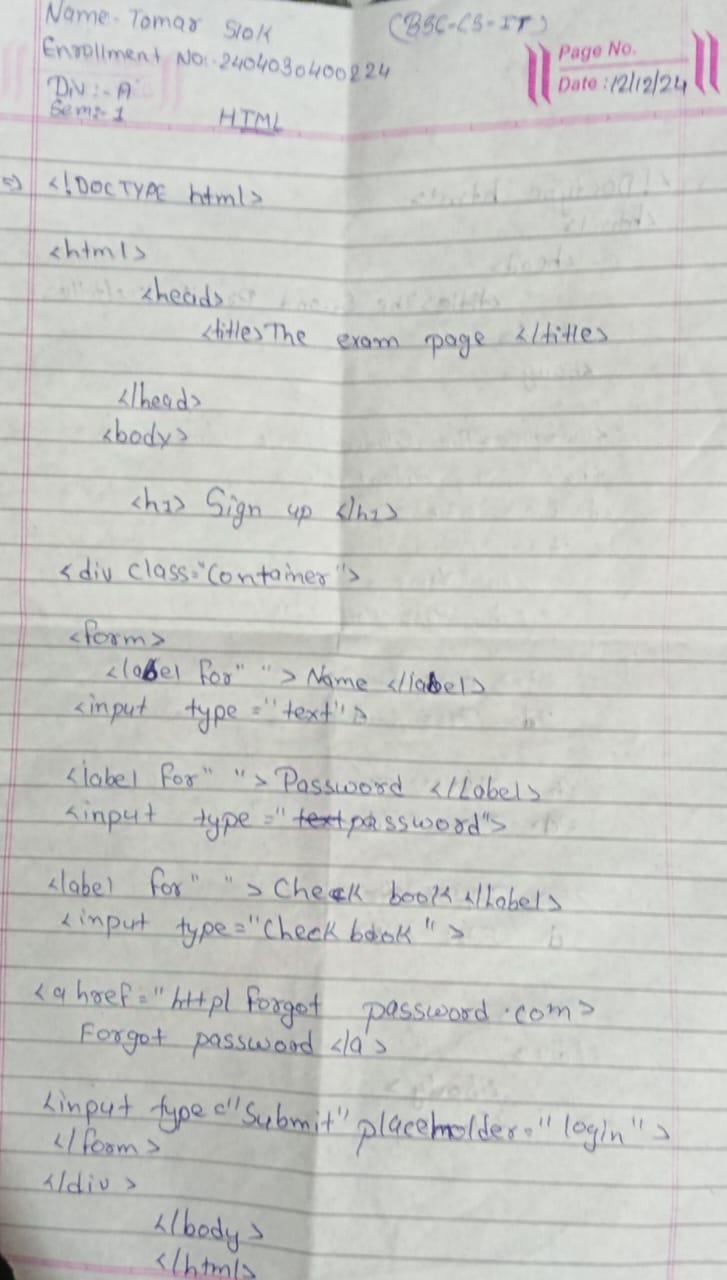 Name- Tomar Slok (BSC-CS-IT)
Enrollment No:- 2404030400224
Page No.
Div :- A
Date : 12/12/24
Sem:- 1
HTML
=> <!DOCTYPE html>
<html>
<head>
<title>The exam page </title>
</head>
<body>
<h1> Sign up </h1>
<div class="Container">
<form>
<label for" "> Name </label>
<input type="text">
<label for" "> Password </Label>
<input type="text password">
<label for" "> Check book </Label>
<input type="Check book">
<a href="http/ forgot password.com>
Forgot password </a>
<input type="Submit" placeholder="login">
</form>
</div>
</body>
</html>